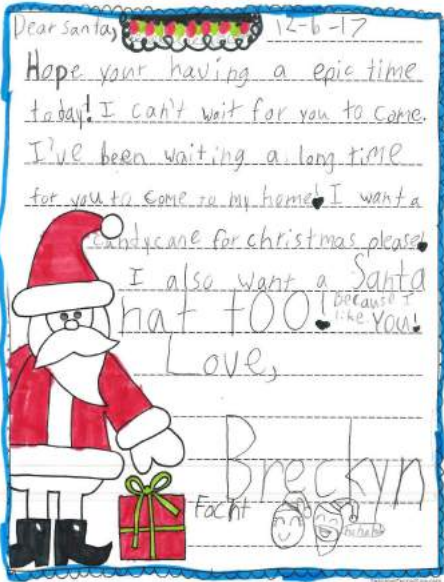 Dear Santa, 12-6-17
Hope your having a epic time
today! I can't wait for you to come.
I've been waiting a long time
for you to come to my home! I want a
candycane for christmas please!
I also want a Santa
hat too! Because I
like You!
Love,
Breckyn
Facht
hahah